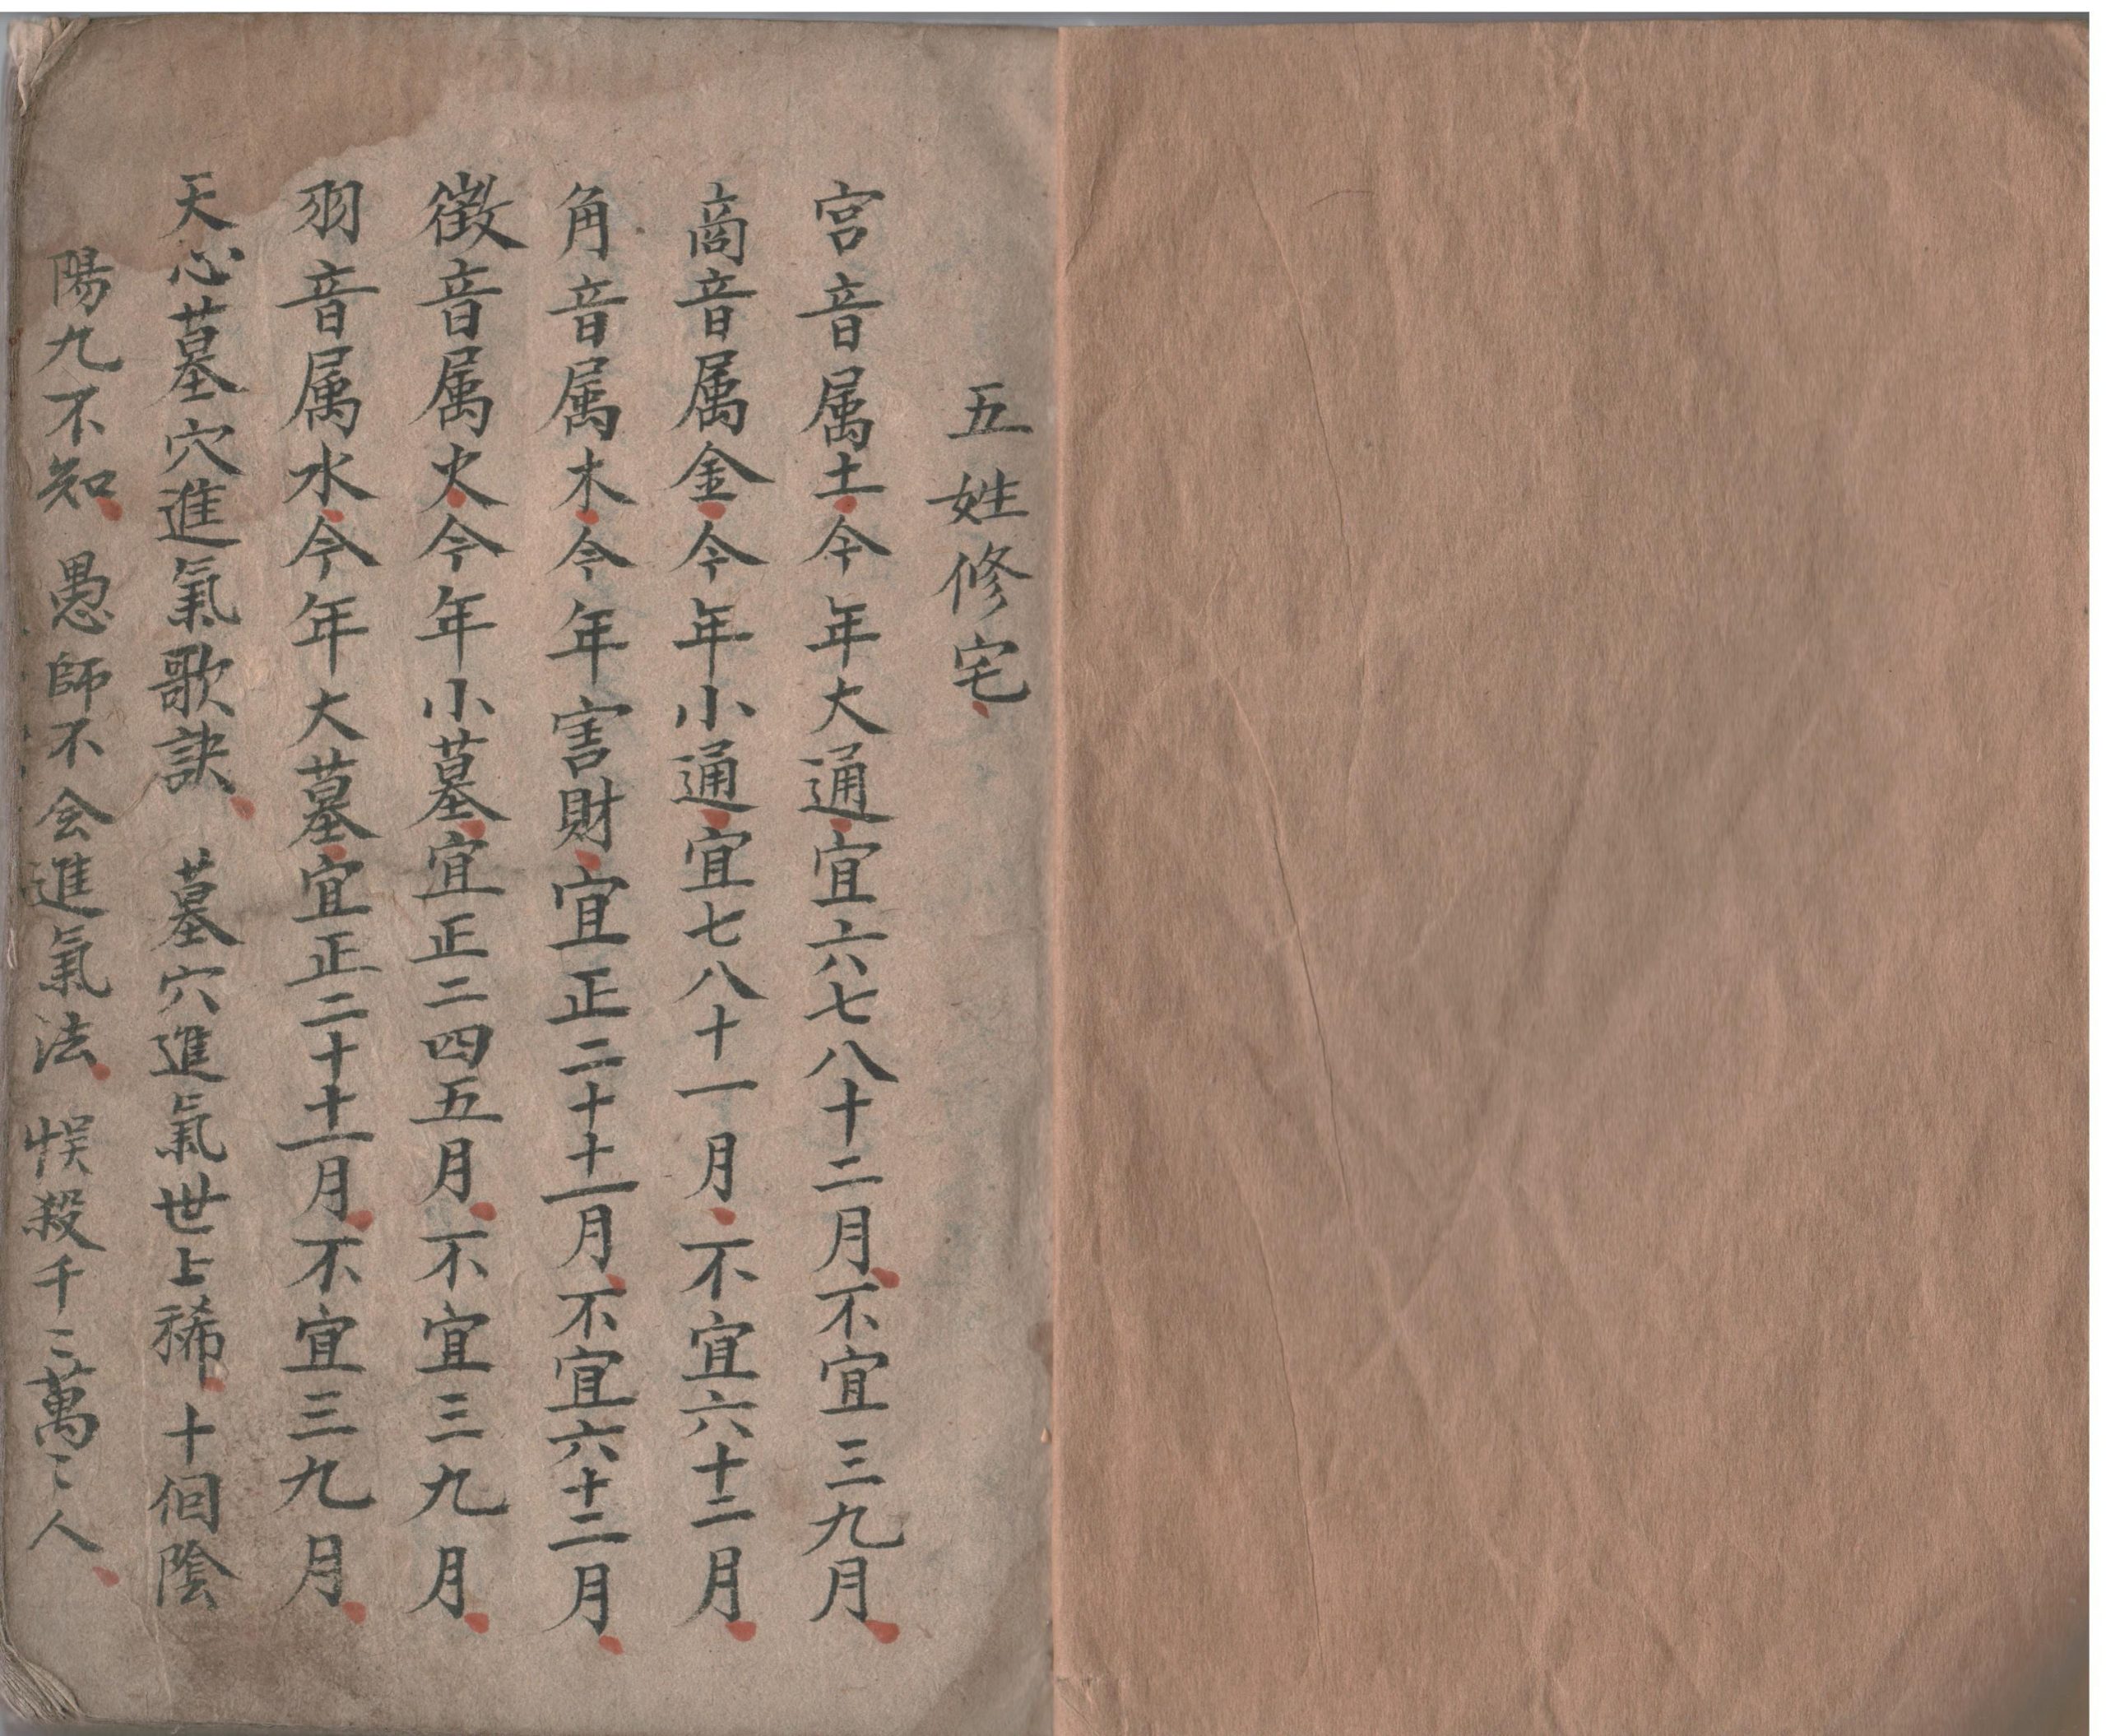 五姓修宅
宫音属土今年大通宜六七八十二月不宜三九月
商音属金今年小通宜七八十一月不宜六十二月
角音属木今年害財宜正二十十一月不宜六十二月
徵音属火今年小墓宜正二四五月不宜三九月
羽音属水今年大墓宜正二十十一月不宜三九月
天心墓穴進氣歌訣 墓穴進氣世上稀十個陰
陽九不知愚師不会進氣法悮殺千〻萬〻人